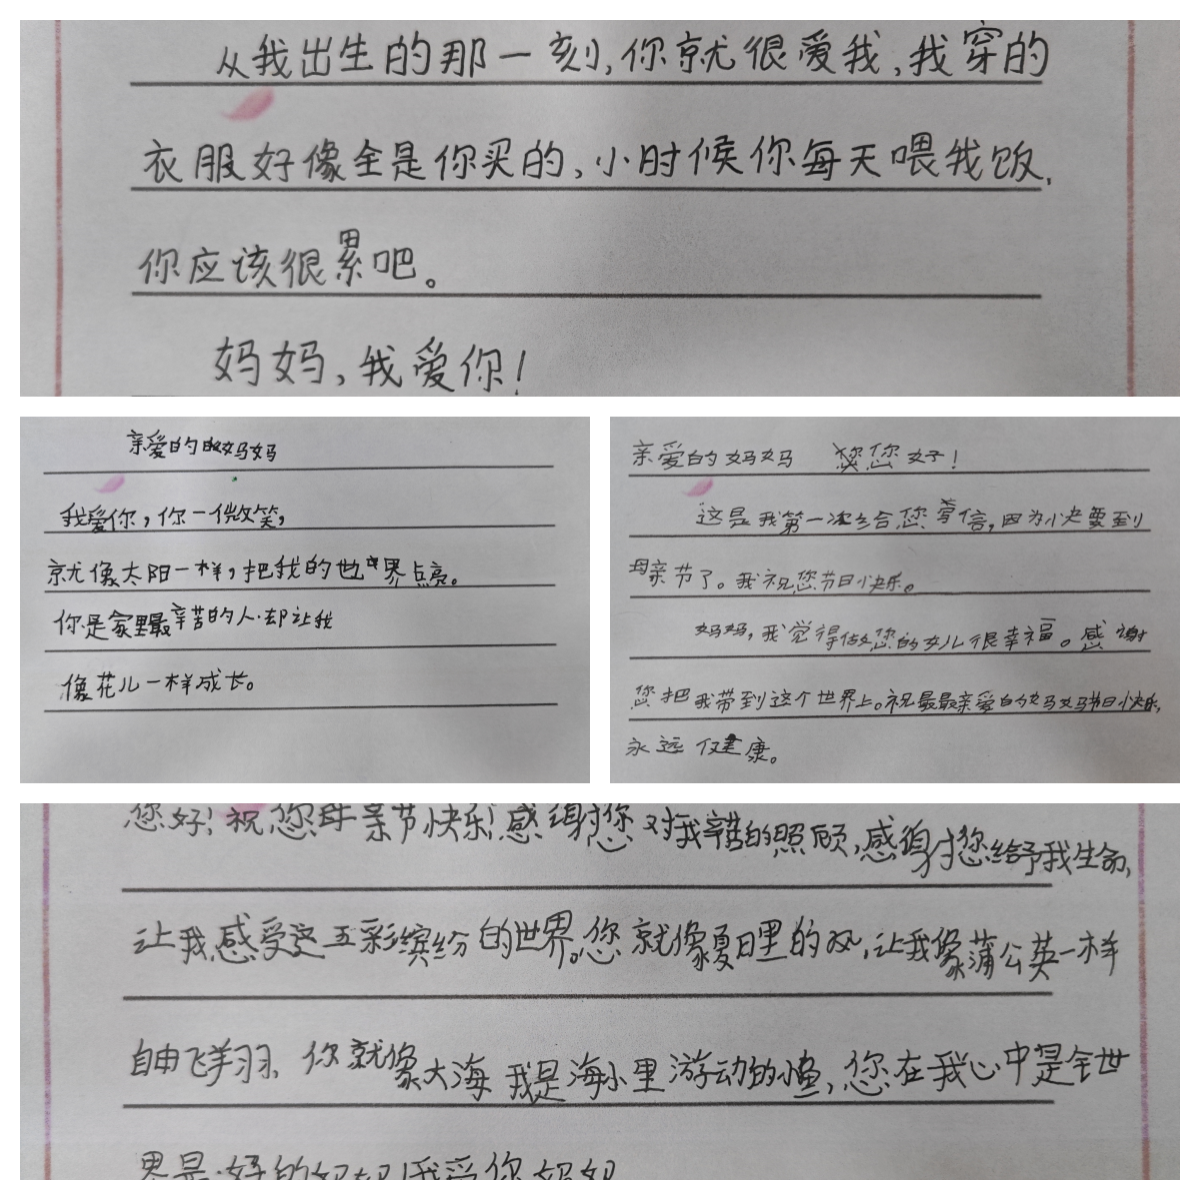 从我出生的那一刻,你就很爱我,我穿的
衣服好像全是你买的,小时候你每天喂我饭,
你应该很累吧。
妈妈,我爱你!
亲爱的妈妈
我爱你,你一微笑,
就像太阳一样,把我的世界点亮。
你是家里最辛苦的人.却让我
像花儿一样成长。
亲爱的妈妈 您好!
这是我第一次给您写信,因为小快要到
母亲节了。我祝您节日快乐。
妈妈,我觉得做您的女儿很幸福。感谢
您把我带到这个世界上。祝最最亲爱的妈妈节日快乐,
永远健康。
您好!祝您母亲节快乐!感谢您对我辛苦的照顾,感谢您给予我生命,
让我感受这五彩缤纷的世界。您就像夏日里的风,让我像蒲公英一样
自由飞翔,你就像大海 我是海小里游动的小鱼,您在我心中是全世
界最好的妈妈!我爱你 妈妈